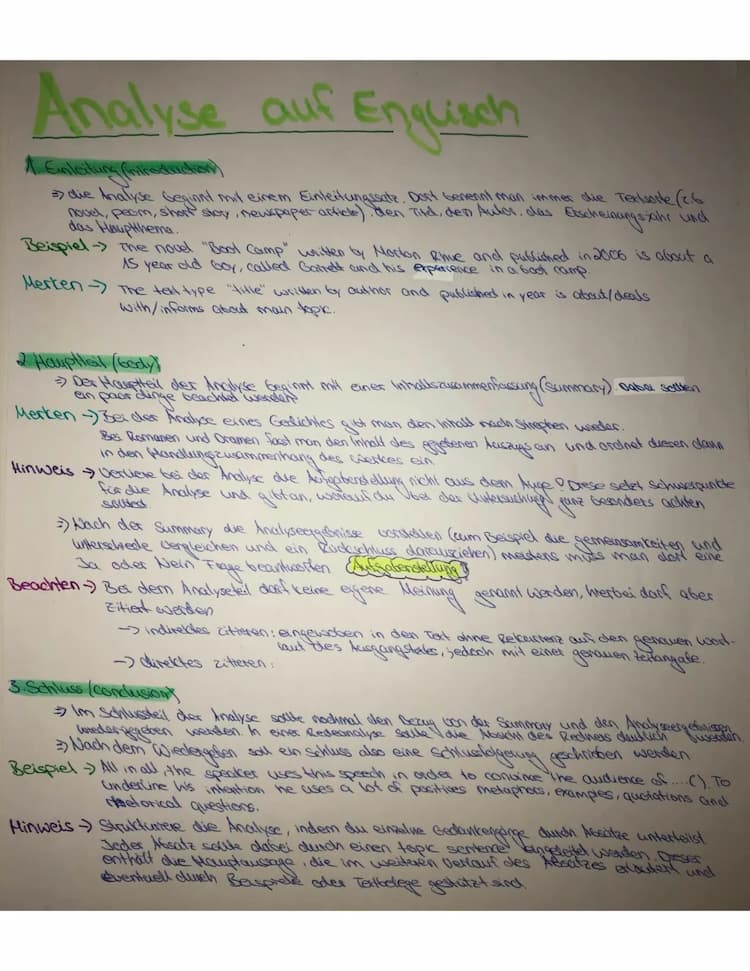 Analyse auf Englisch
1. Einleitung (introduction)
=> die Analyse beginnt mit einem Einleitungssatz. Dort benennt man immer die Textsorte (z.B
novel, peom, short story, newspaper article), den Titel, den Autor, das Erscheinungsjahr und
das Hauptthema.
Beispiel -> The novel "Boot Camp" written by Morton Rhue and published in 2006 is about a
15 year old boy, called Garrett and his experience in a boot camp.
Merken -> The text type "title" written by author and published in year is about/deals
with/informs about main topic.
2. Hauptteil (body)
=> Der Hauptteil der Analyse beginnt mit einer Inhaltszusammenfassung (summary). Dabei sollten
ein paar dinge beachtet werden
Merken -> Bei der Analyse eines Gedichtes gibt man den Inhalt nach Strophen wieder.
Bei Romanen und Dramen fasst man den Inhalt des gegebenen Auszugs an und ordnet diesen dann
in den Handlungszusammenhang des Werkes ein.
Hinweis -> Verliere bei der Analyse die Aufgabenstellung nicht aus dem Auge! Diese setzt Schwerpunkte
für die Analyse und gibt an, worauf du bei der Untersuchung ganz besonders achten
solltest
=> Nach der Summary die Analyseergebnisse vorstellen (zum Beispiel die gemeinsamkeiten und
unterschiede vergleichen und ein Rückschluss darausziehen) meistens muss man dort eine
Ja oder Nein Frage beantworten Aufgabenstellung
Beachten -> Bei dem Analyseteil darf keine eigene Meinung genannt werden, hierbei darf aber
zitiert werden
-> indirektes zitieren: eingewoben in den Text ohne Rekurrenz auf den genauen Wort-
laut des Ausgangstextes, jedoch mit einer genauen Zeilenangabe.
-> direktes zitieren:
3. Schluss (conclusion)
=> Im Schlussteil der Analyse sollte nochmal den Bezug von der Summary und den Analyseergebnissen
wiedergegeben werden. In einer Redeanalyse sollte die Absicht des Redners deutlich werden
=> Nach dem Wiedergeben soll ein schluss also eine Schlussfolgerung geschrieben werden
Beispiel -> All in all, the speaker uses this speech in order to convince the audience of ....(). To
underline his intention he uses a lot of positives metaphors, examples, quotations and
rhetorical questions.
Hinweis -> Strukturiere die Analyse, indem du einzelne Gedankengänge durch Absätze unterteilst
Jeder Absatz sollte dabei durch einen topic sentence eingeleitet werden. Dieser
enthält die Hauptaussage, die im weiteren Verlauf des Absatzes erläutert und
eventuell durch Beispiele oder Textbelege gestützt sind.